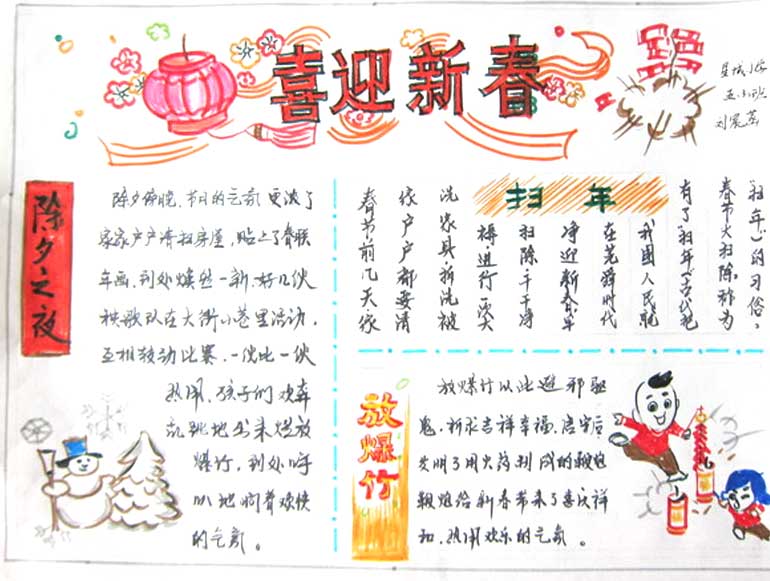 喜迎新春
五小班
除夕之夜
除夕傍晚，节日的气氛更浓了
家家户户清扫房屋，贴上了春联
年画，到处焕然一新，好几伙
秧歌队在大街小巷里活动，
互相转动比赛，一伙比一伙
热闹，孩子们欢奔
乱跳地出来燃放
爆竹，到处呼
叭地响着欢快
的气氛。
扫年
"扫年"）的习俗，
春节大扫除称为
有了"扫年"（古代把
我国人民就
在尧舜时代
净迎新春早
扫除干干净
得进行一次大
洗家具拆洗被
家户户都要清
春节前几天家
放爆竹
放爆竹以此避邪驱
鬼，祈求吉祥幸福，唐宋后
发明了用火药制成的鞭炮
鞭炮给新春带来了喜庆祥
和，热闹欢乐的气氛。